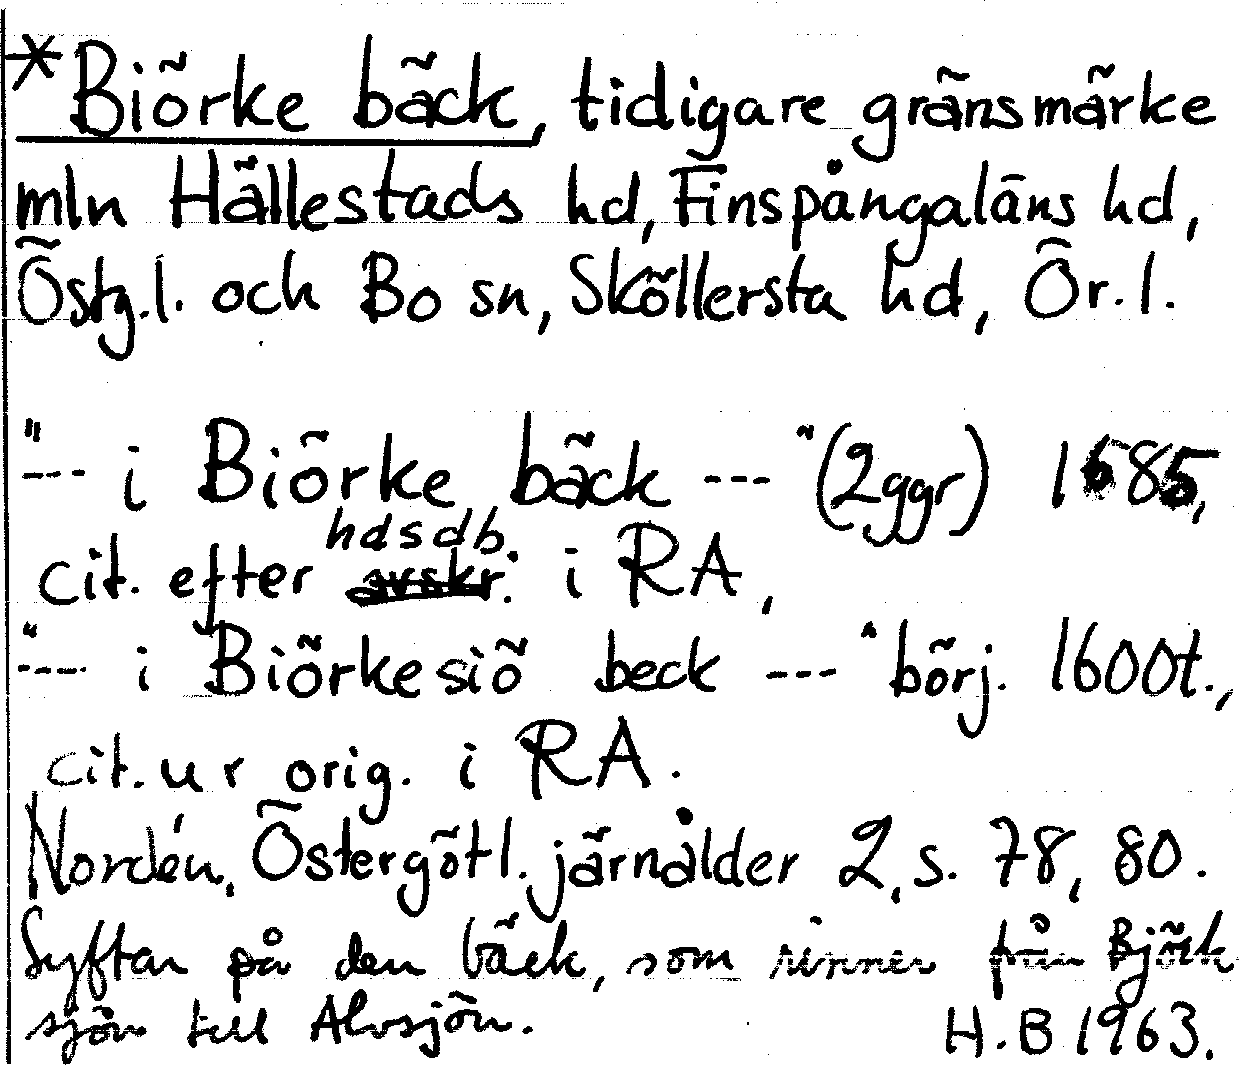 *Biörke bäck, tidigare gränsmärke
mln Hällestads hd, Finspångaläns hd,
Östg.l. och Bo sn, Sköllersta hd, Ör.l.
"--- i Biörke bäck ---" (2ggr) 1685,
hdsdb.
cit. efter avskr. i RA,
"---- i Biörkesiö beck ---" börj. 1600t.,
cit. ur orig. i RA.
Nordén, Östergötl. järnålder 2, s. 78, 80.
Syftar på den bäck, som rinner från Björk
sjön till Alvsjön. H.B 1963.